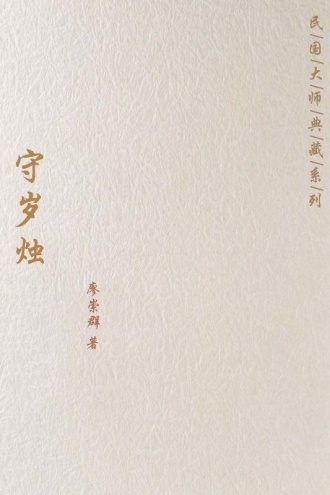 民国大师典藏系列
守岁烛
廖崇群 著